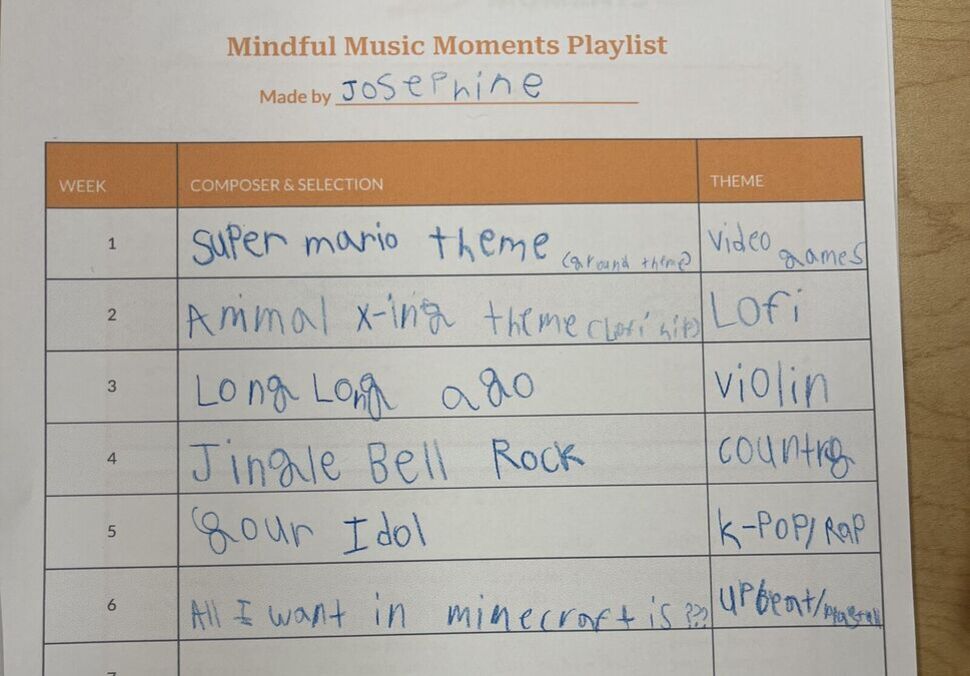 Mindful Music Moments Playlist
Made by Josephine
WEEK COMPOSER & SELECTION THEME
1 Super mario theme (ground theme) video games
2 Animal x-ing theme (Lofi hip) Lofi
3 Long Long ago violin
4 Jingle Bell Rock country
5 your Idol K-POP/RaP
6 All I want in minecraft is ??? upbeat/